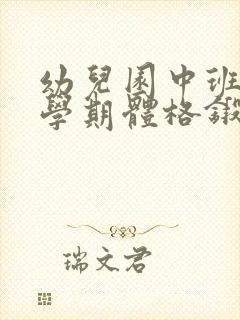 幼兒園中班
學期體格鍛
瑞文君